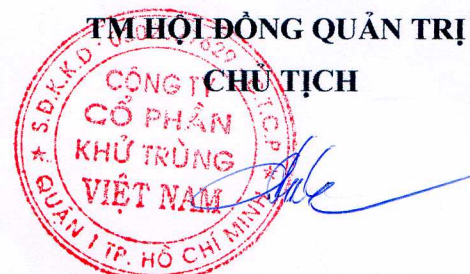 TM HỘI ĐỒNG QUẢN TRỊ
CHỦ TỊCH
CÔNG TY
CỔ PHẦN
KHỬ TRÙNG
VIỆT NAM
QUẬN 1 TP. HỒ CHÍ MINH